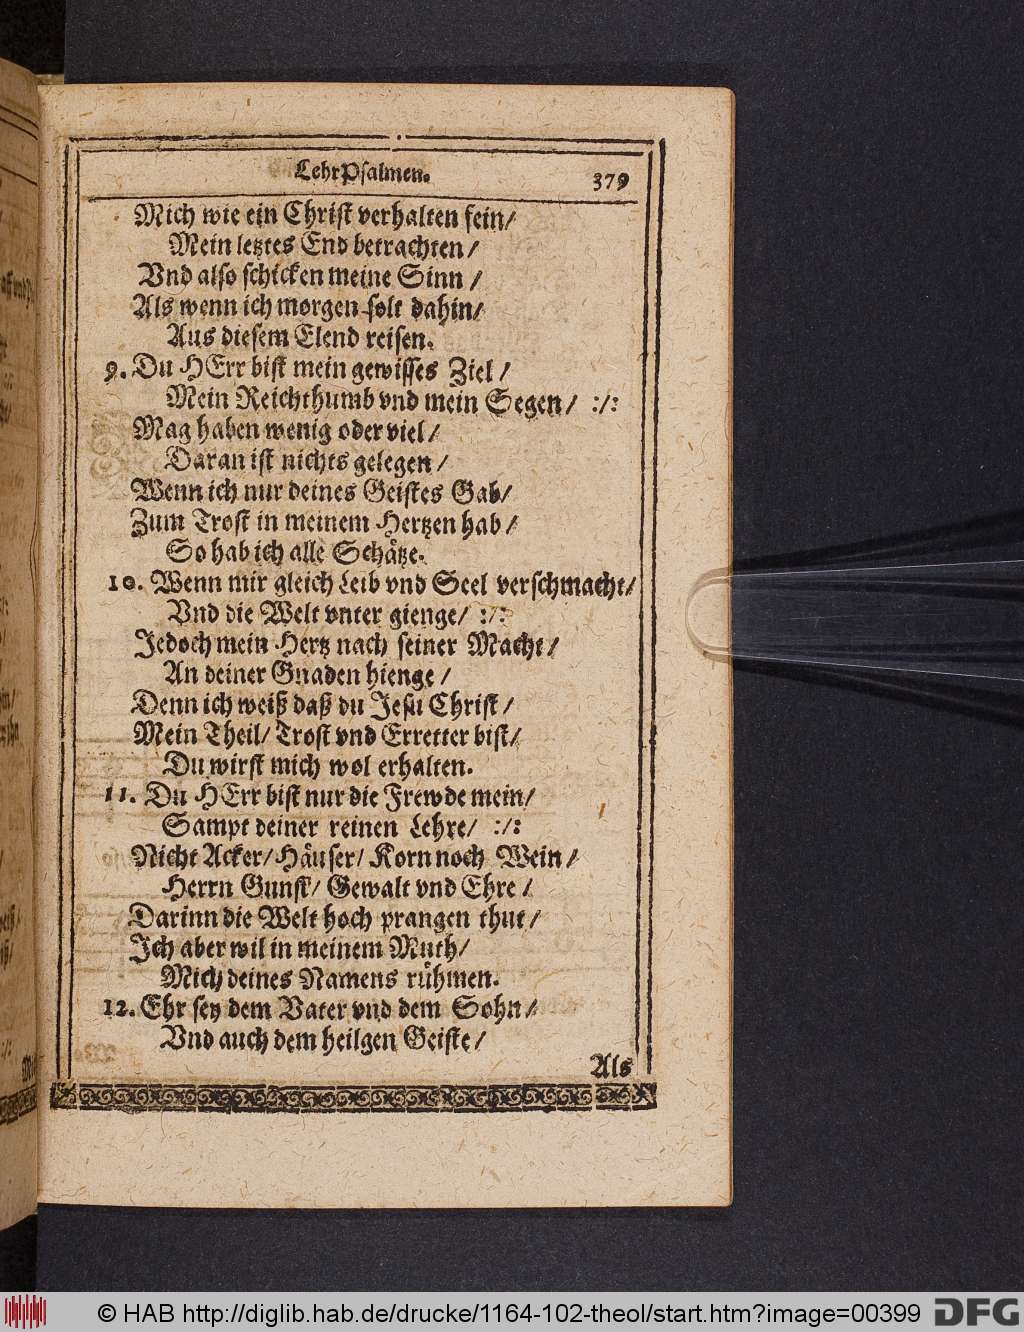 LehrPsalmen.
379
Mich wie ein Christ verhalten fein/
Mein letztes End betrachten/
Vnd also schicken meine Sinn/
Als wenn ich morgen solt dahin/
Aus diesem Elend reisen.
9. Du HErr bist mein gewisses Ziel/
Mein Reichthumb vnd mein Segen/ :/:
Mag haben wenig oder viel/
Daran ist nichts gelegen/
Wenn ich nur deines Geistes Gab/
Zum Trost in meinem Hertzen hab/
So hab ich alle Schätze.
10. Wenn mir gleich Leib vnd Seel verschmacht/
Vnd die Welt vnter gienge/ :/:
Jedoch mein Hertz nach seiner Macht/
An deiner Gnaden hienge/
Denn ich weiß daß du Jesu Christ/
Mein Theil/ Trost vnd Erretter bist/
Du wirst mich wol erhalten.
11. Du HErr bist nur die Frewde mein/
Sampt deiner reinen Lehre/ :/:
Nicht Acker/ Häuser/ Korn noch Wein/
Herrn Gunst/ Gewalt vnd Ehre/
Darinn die Welt hoch prangen thut/
Ich aber wil in meinem Muth/
Mich deines Namens rühmen.
12. Ehr sey dem Vater vnd dem Sohn/
Vnd auch dem heilgen Geiste/
Als
© HAB http://diglib.hab.de/drucke/1164-102-theol/start.htm?image=00399
DFG